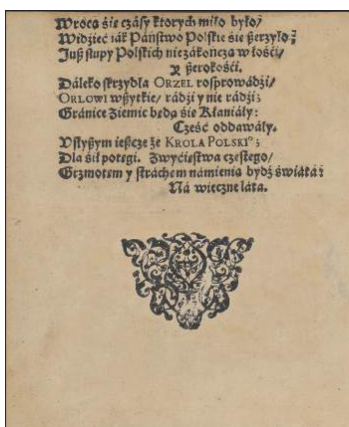 Wrócą się czásy ktorych miło było/
Widzieć iák Páństwo Polskie sie szerzyło:
Już słupy Polskich nie zákończą włości/
Y szerokości.
Dáleko skrzydła ORZEŁ rosprowádzi/
ORLOWI wszytkie/ rádzi y nie rádzi:
Gránice Ziemie będą sie Kłániáły:
Cześć oddawáły.
Vsłyszym ieszcze że KROLA POLSKIº:
Dla sił potęgi. Zwycięstwa częstego/
Grzmotem y stráchem námienią bydź światá:
Ná wieczne látá.